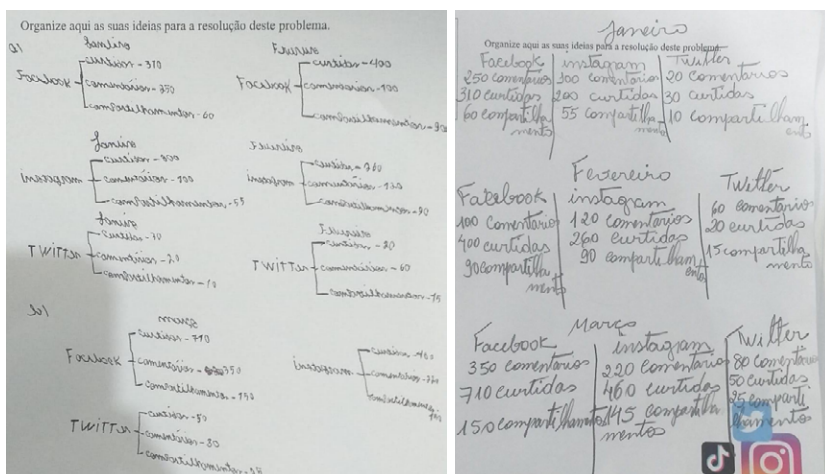 Organize aqui as suas ideias para a resolução deste problema.
a)
Facebook
curtidas - 310
comentários - 350
compartilhamentos - 60
Facebook
curtidas - 400
comentários - 100
compartilhamentos - 90
Janeiro
Instagram
comentários - 100
compartilhamentos - 55
instagram
compartilhamentos - 90
TWITTER
comentários - 20
compartilhamentos - 10
TWITTER
curtidas - 20
comentários - 60
compartilhamentos - 15
b)
março
Facebook
curtidas - 710
comentários - 350
compartilhamentos - 150
instagram
curtidas - 460
TWITTER
curtidas - 50
comentários - 80
Janeiro
Organize aqui as suas ideias para a resolução deste problema.
Facebook
250 comentários
310 curtidas
60 compartilha
mento
instagram
100 comentários
200 curtidas
55 compartilha
mento
Twitter
20 comentarios
30 curtidas
10 compartilham
ento
Fevereiro
Facebook
100 comentarios
400 curtidas
90 compartilha
mento
instagram
120 comentários
260 curtidas
90 compartilham
ento
Twitter
60 comentarios
20 curtidas
15 compartilha
mento
Março
Facebook
350 comentários
710 curtidas
150 compartilhamento
instagram
220 comentarios
460 curtidas
145 compartilha
mentos
Twitter
80 comentários
50 curtidas
25 comparti
lhamentos